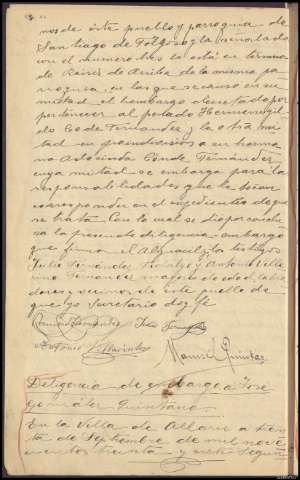 nos de éste pueblo y parroquia de
Santiago de Folgoso y la señalada
con el numero tres lo está en termino
de Reiris de Arriba de la misma pa-
rroquia, en las que se causa en su
mitad el embargo decretado por
pertenecer al penado Hermenegil-
do Conde Fernandez y la otra mi-
tad en proindiviso a su herma-
na Adosinda Conde Fernández
cuya mitad se embarga para la
responsabilidades que le sean
corresponder en el expediente de que
se trata. Con lo cual se dió por conclui-
da la presente diligencia embargo
que firma el Alguacil y los testigos
Julio Fernández y Antonio Villa-
rino Fernandez mayores de edad, labra-
dores y vecinos de este pueblo de
que yo Secretario doy fé
Julio Fernández
Antonio Villarino
Manuel
Deligencia de embargo a José
González Quintana
En la Villa de Allariz a siete
de Septiembre de mil nove-
cientos treinta y siete Segun